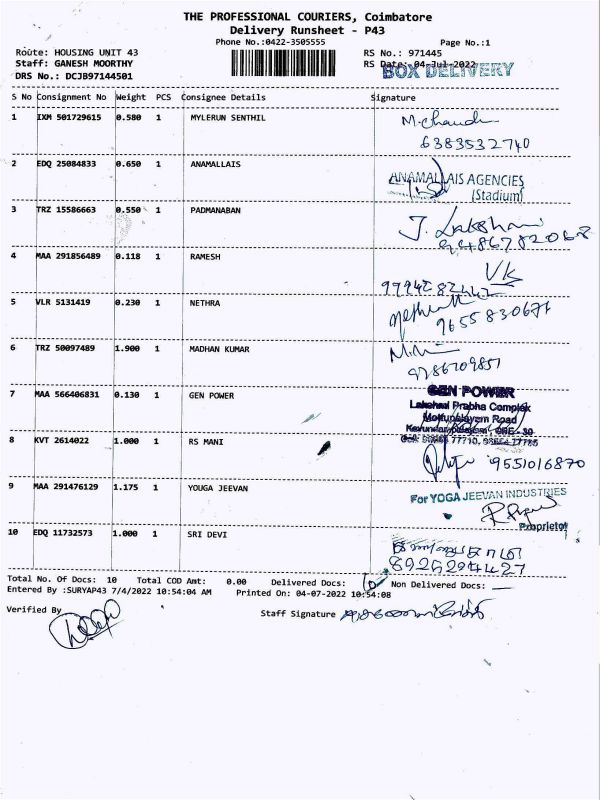 THE PROFESSIONAL COURIERS, Coimbatore
Delivery Runsheet - P43
Phone No.:0422-3505555
Page No.:1
Route: HOUSING UNIT 43
RS No.: 971445
Staff: GANESH MOORTHY
RS Date: 04-Jul-2022
BOX DELIVERY
DRS No.: DCJB97144501
S No Consignment No Weight PCS Consignee Details Signature
1 IXM 501729615 0.580 1 MYLERUN SENTHIL M.Chandu
6383532740
2 EDQ 25084833 0.650 1 ANAMALLAIS
ANAMALLAIS AGENCIES
(Stadium)
3 TRZ 15586663 0.550 1 PADMANABAN J. Lakshmi
9486782068
4 MAA 291856489 0.118 1 RAMESH VK
5 VLR 5131419 0.230 1 NETHRA
9655830671
6 TRZ 50097489 1.900 1 MADHAN KUMAR
9786709857
7 MAA 566406831 0.130 1 GEN POWER
GEN POWER
Lakshmi Prabha Complex
Mettupalayam Road
8 KVT 2614022 1.000 1 RS MANI
9551016870
9 MAA 291476129 1.175 1 YOUGA JEEVAN
For YOGA JEEVAN INDUSTRIES
Proprietor
10 EDQ 11732573 1.000 1 SRI DEVI
Total No. Of Docs: 10 Total COD Amt: 0.00 Delivered Docs: 10 Non Delivered Docs:
Entered By :SURYAP43 7/4/2022 10:54:04 AM Printed On: 04-07-2022 10:54:08
Verified By
Staff Signature